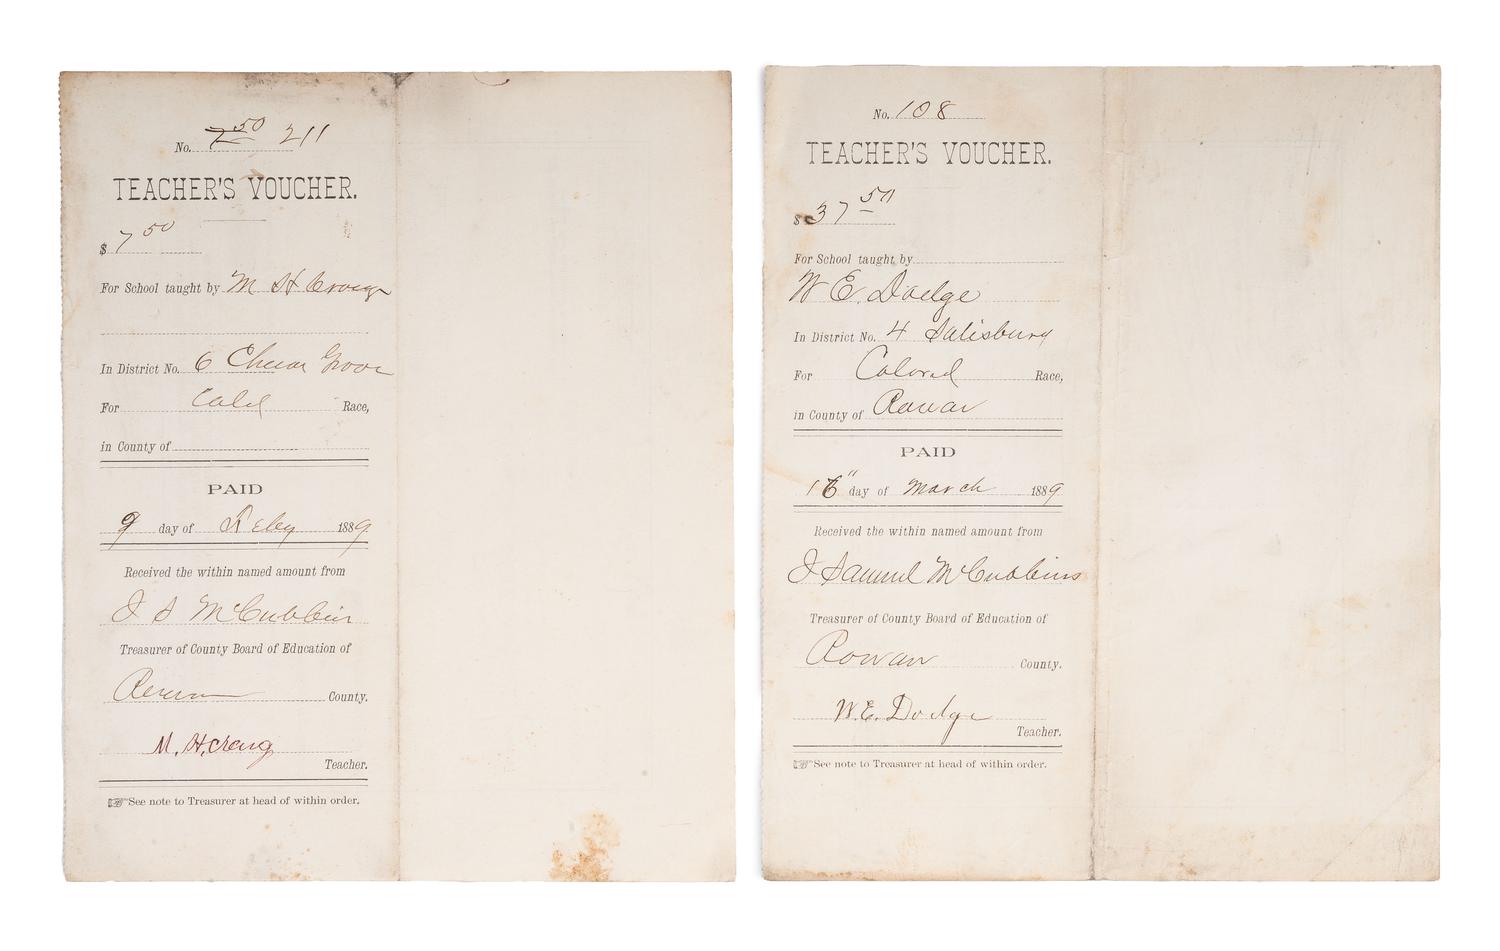 No. 7 50 211
TEACHER'S VOUCHER.
$ 7 50
For School taught by M H Craig
In District No. 6 China Grove
For Cold Race,
in County of
PAID
9 day of Feby 1889
Received the within named amount from
J S McCubbin
Treasurer of County Board of Education of
Rowan County.
M. H. Craig
Teacher.
See note to Treasurer at head of within order.
No. 108
TEACHER'S VOUCHER.
$ 37 50
For School taught by
W E. Dodge
In District No. 4 Salisbury
For Colored Race,
in County of Rowan
PAID
day of March 1889
Received the within named amount from
J Samuel McCubbins
Treasurer of County Board of Education of
Rowan County.
W. E. Dodge
Teacher.
See note to Treasurer at head of within order.